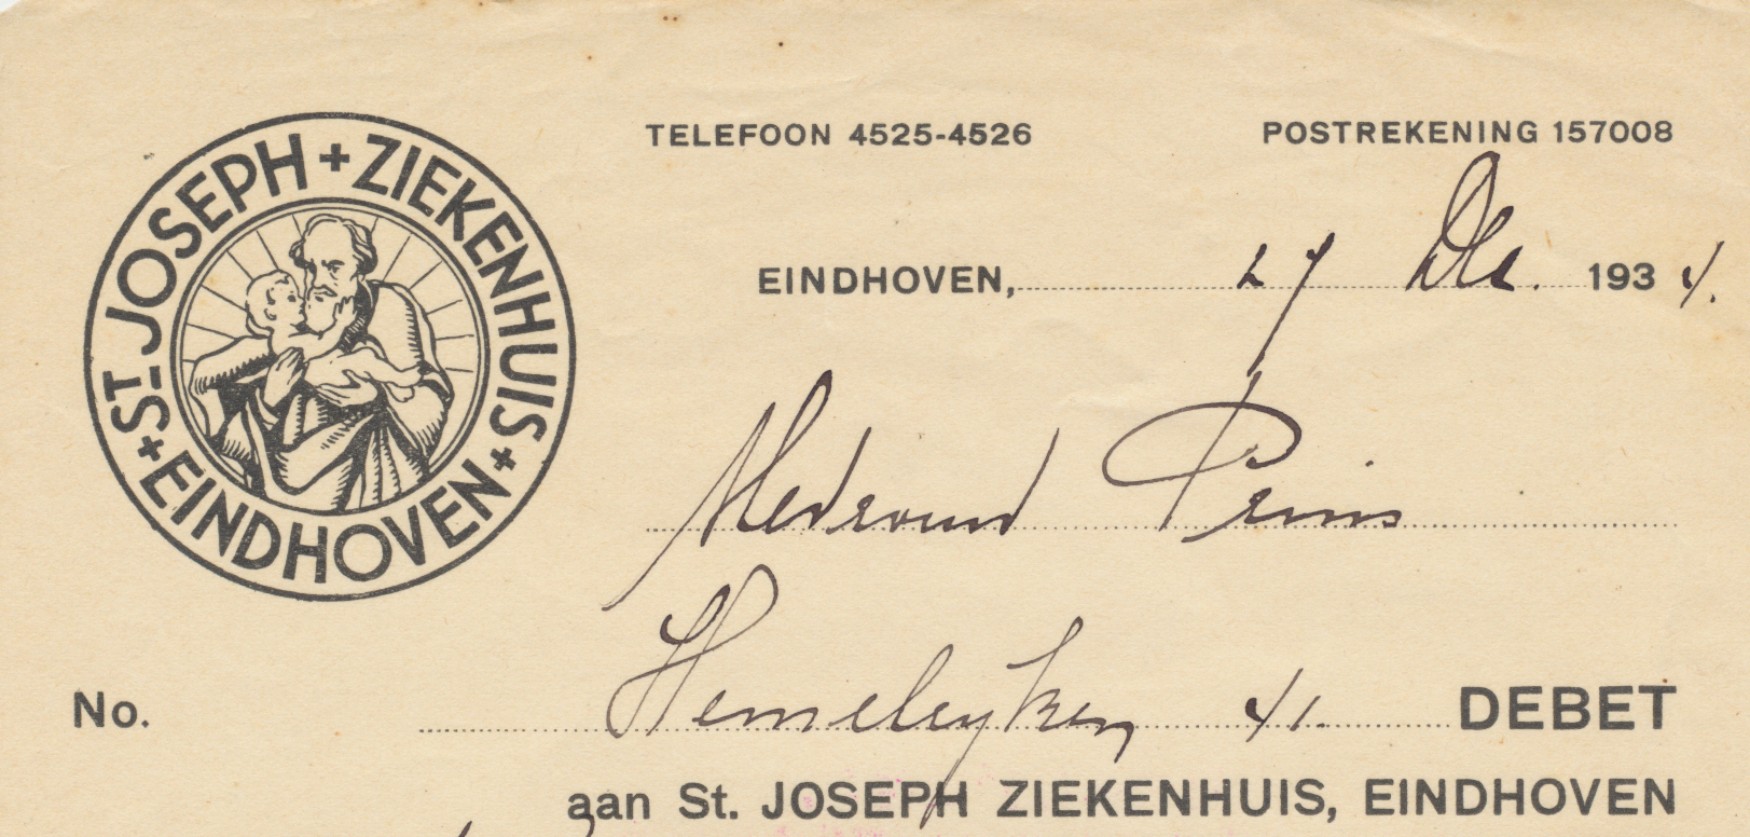 ST. JOSEPH + ZIEKENHUIS + EINDHOVEN +
TELEFOON 4525-4526
POSTREKENING 157008
EINDHOVEN, 27 Dec. 1934.
Mevrouw Prins
Hemelrijken 41.
No. DEBET
aan St. JOSEPH ZIEKENHUIS, EINDHOVEN